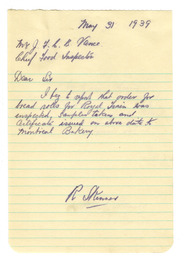 May 31 1939
Mr J. F. L. B Vance
Chief Food Inspector
Dear Sir
I beg to report that order for
bread rolls for Royal Train was
inspected, samples taken, and
Certificate issued on above date to
Montreal Bakery
R Skinner